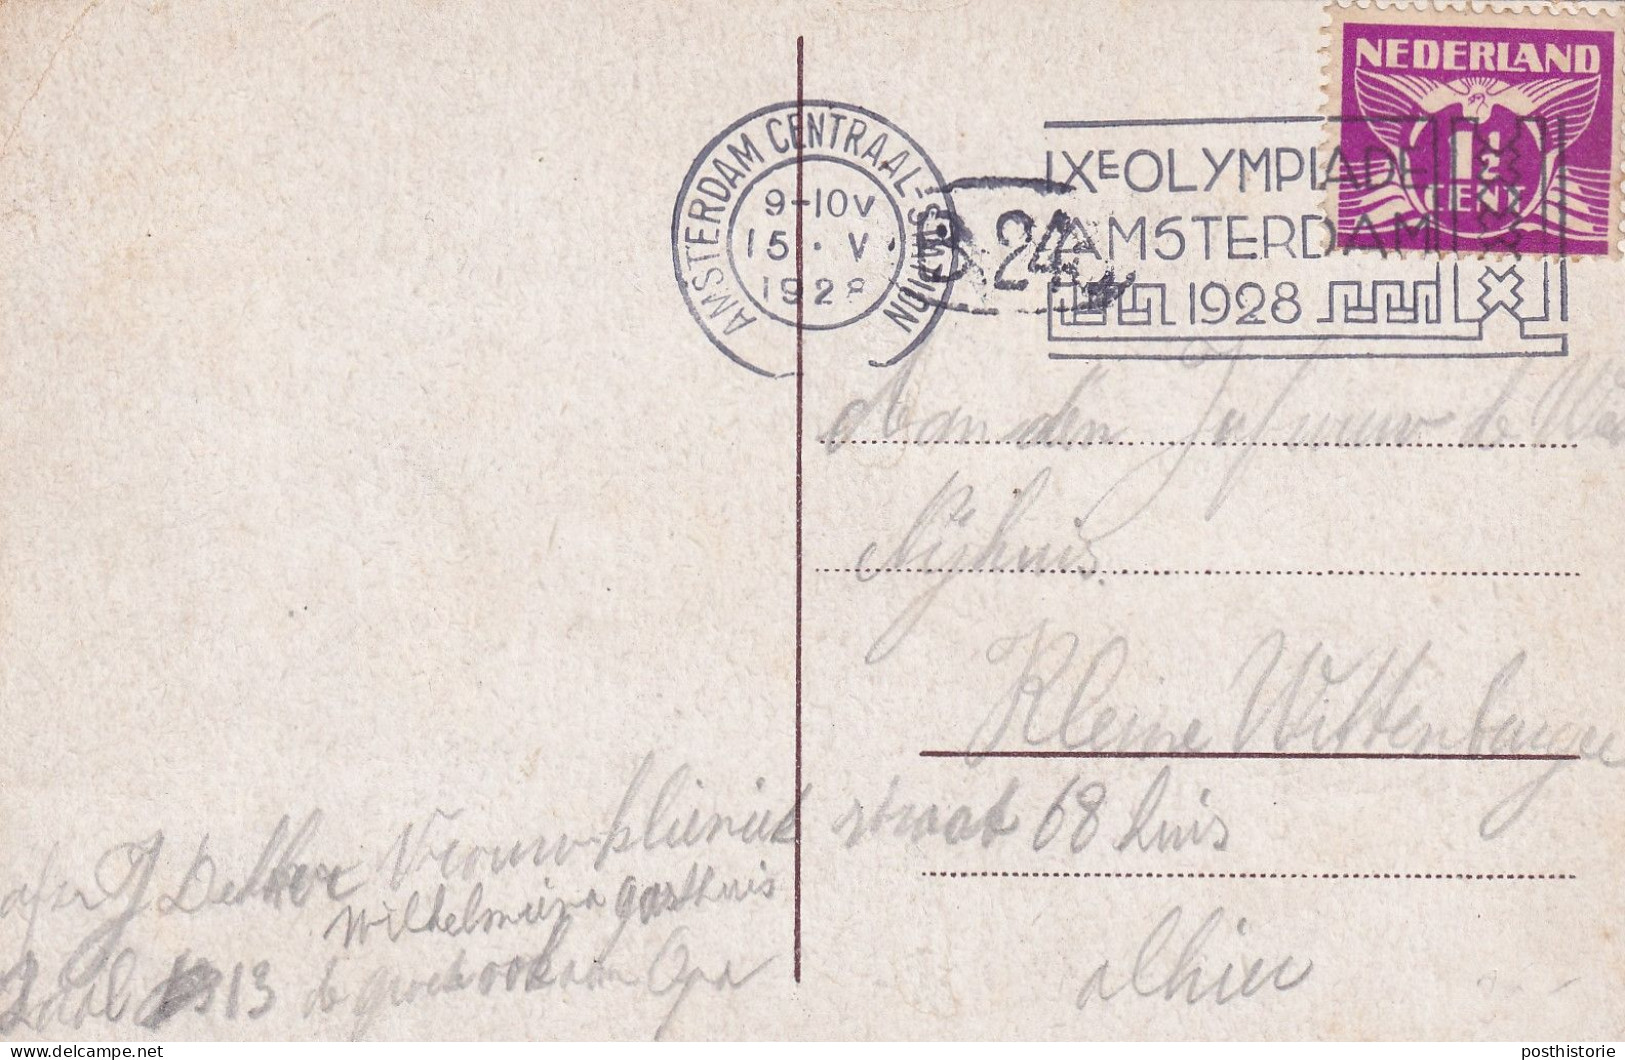 NEDERLAND
1½
CENT
AMSTERDAM CENTRAAL-STATION
9-10V
15 · V ·
1928
24
IXE OLYMPIADE
AMSTERDAM
1928
Aan den Jufvrouw de
Nijhuis.
Kleine Wittenburger
straat 68 huis
alhier
afz J Dekker Vrouwklieniek
Wilhelmiena gasthuis
Zaal 13 de groete ook aan Opa
posthistorie